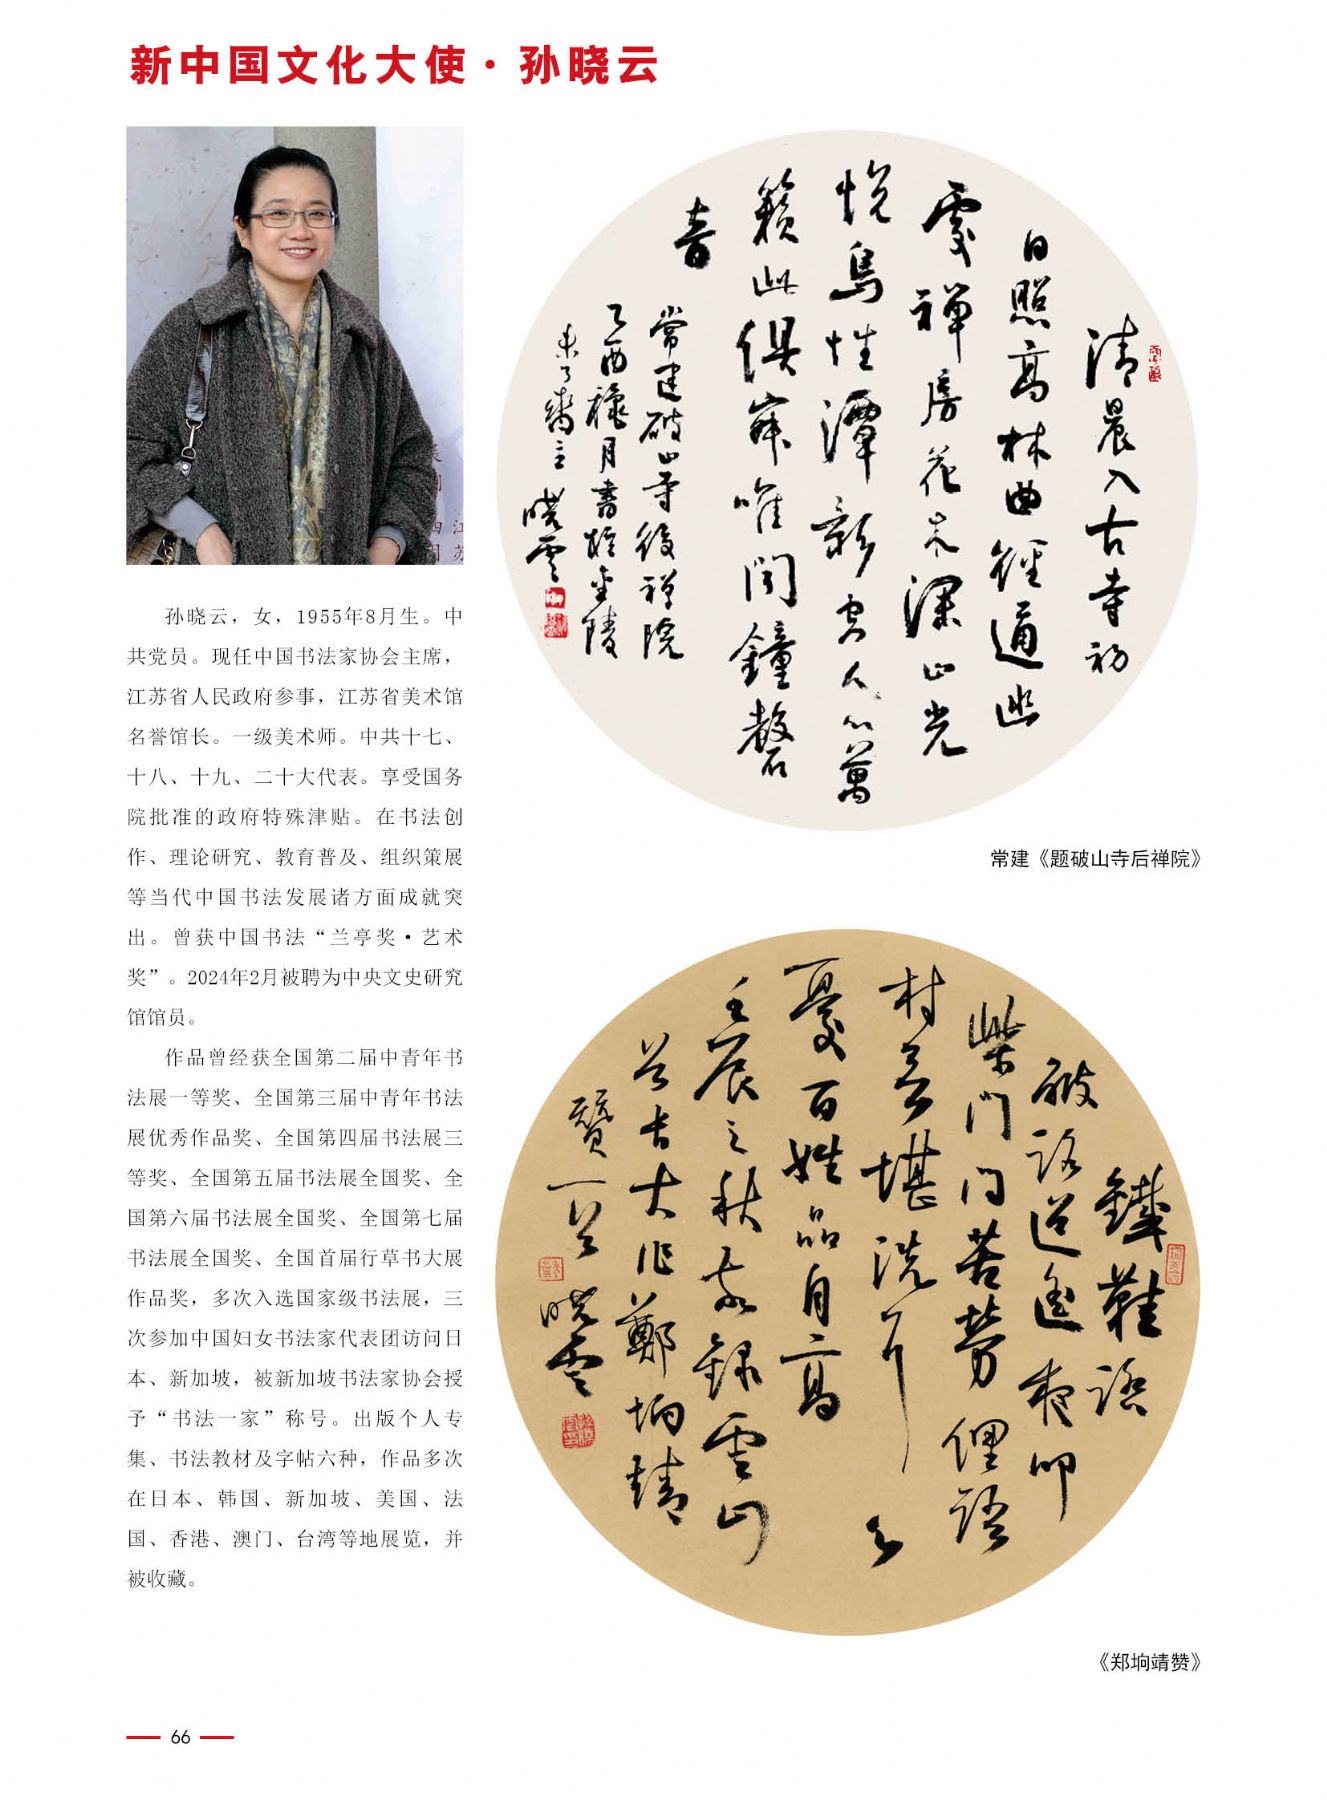 新中国文化大使·孙晓云
孙晓云，女，1955年8月生。中
共党员。现任中国书法家协会主席，
江苏省人民政府参事，江苏省美术馆
名誉馆长。一级美术师。中共十七、
十八、十九、二十大代表。享受国务
院批准的政府特殊津贴。在书法创
作、理论研究、教育普及、组织策展
等当代中国书法发展诸方面成就突
出。曾获中国书法“兰亭奖·艺术
奖”。2024年2月被聘为中央文史研究
馆馆员。
作品曾经获全国第二届中青年书
法展一等奖、全国第三届中青年书法
展优秀作品奖、全国第四届书法展三
等奖、全国第五届书法展全国奖、全
国第六届书法展全国奖、全国第七届
书法展全国奖、全国首届行草书大展
作品奖，多次入选国家级书法展，三
次参加中国妇女书法家代表团访问日
本、新加坡，被新加坡书法家协会授
予“书法一家”称号。出版个人专
集、书法教材及字帖六种，作品多次
在日本、韩国、新加坡、美国、法
国、香港、澳门、台湾等地展览，并
被收藏。
清晨入古寺初
日照高林曲径通幽
处禅房花木深山光
悦鸟性潭影空人心万
籁此俱寂唯闻钟磬
音
常建破山寺後禅院
乙酉穐月書於金陵
晓雲
常建《题破山寺后禅院》
鐵鞋
破 逍遥夜叩
柴門問苦勞俚語
村言堪洗耳
憂百姓品自高
壬辰之秋敬録雲山
公古大作鄭垧靖
贊一首
晓雲
《郑垧靖赞》
66